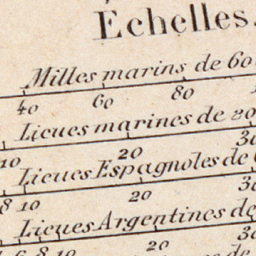 Échelles.
Milles marins de 60
40 60 80
Lieues marines de 20
10 20 30
Lieues Espagnoles de
8 10 20 30
Lieues Argentines de
6 8 10 20 30